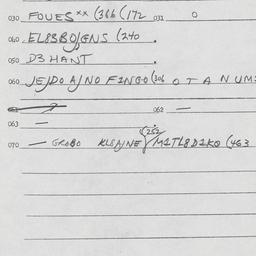 030 FOUES ×× (366 (172 031 0
040 EL8SBOJGNS (240 .
050 D3 HANT .
060 JEJDO AJNO F2NGO (306 O T A NUM
062 —
063 —
070 — GROBO KLSAJNE (252) M1TL8D1KO (463